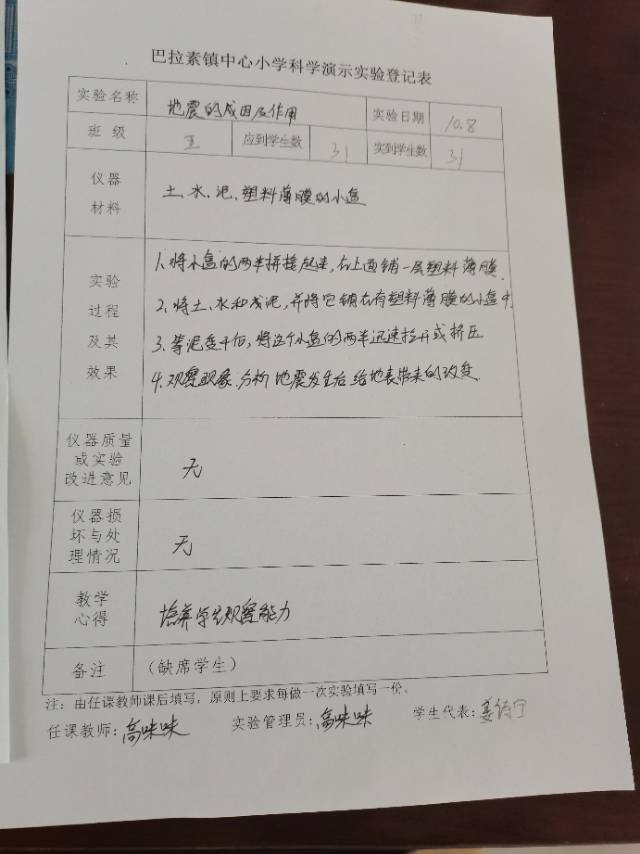 巴拉素镇中心小学科学演示实验登记表
实验名称 地震的成因及作用 实验日期 10.8
班级 五 应到学生数 31 实到学生数 31
仪器
材料
土、水、泥、塑料薄膜的小盒
实验
过程
及其
效果
1、将小盒的两半拼接起来,在上面铺一层塑料薄膜.
2、将土、水和成泥,并将它铺在有塑料薄膜的小盒中
3、等泥变干后,将这个小盒的两半迅速拉开或挤压
4、观察现象.分析地震发生后给地表带来的改变.
仪器质量
或实验
改进意见
无
仪器损
坏与处
理情况
无
教学
心得
培养学生观察能力
备注 (缺席学生)
注:由任课教师课后填写,原则上要求每做一次实验填写一份。
任课教师:高味味 实验管理员:高味味 学生代表:姜